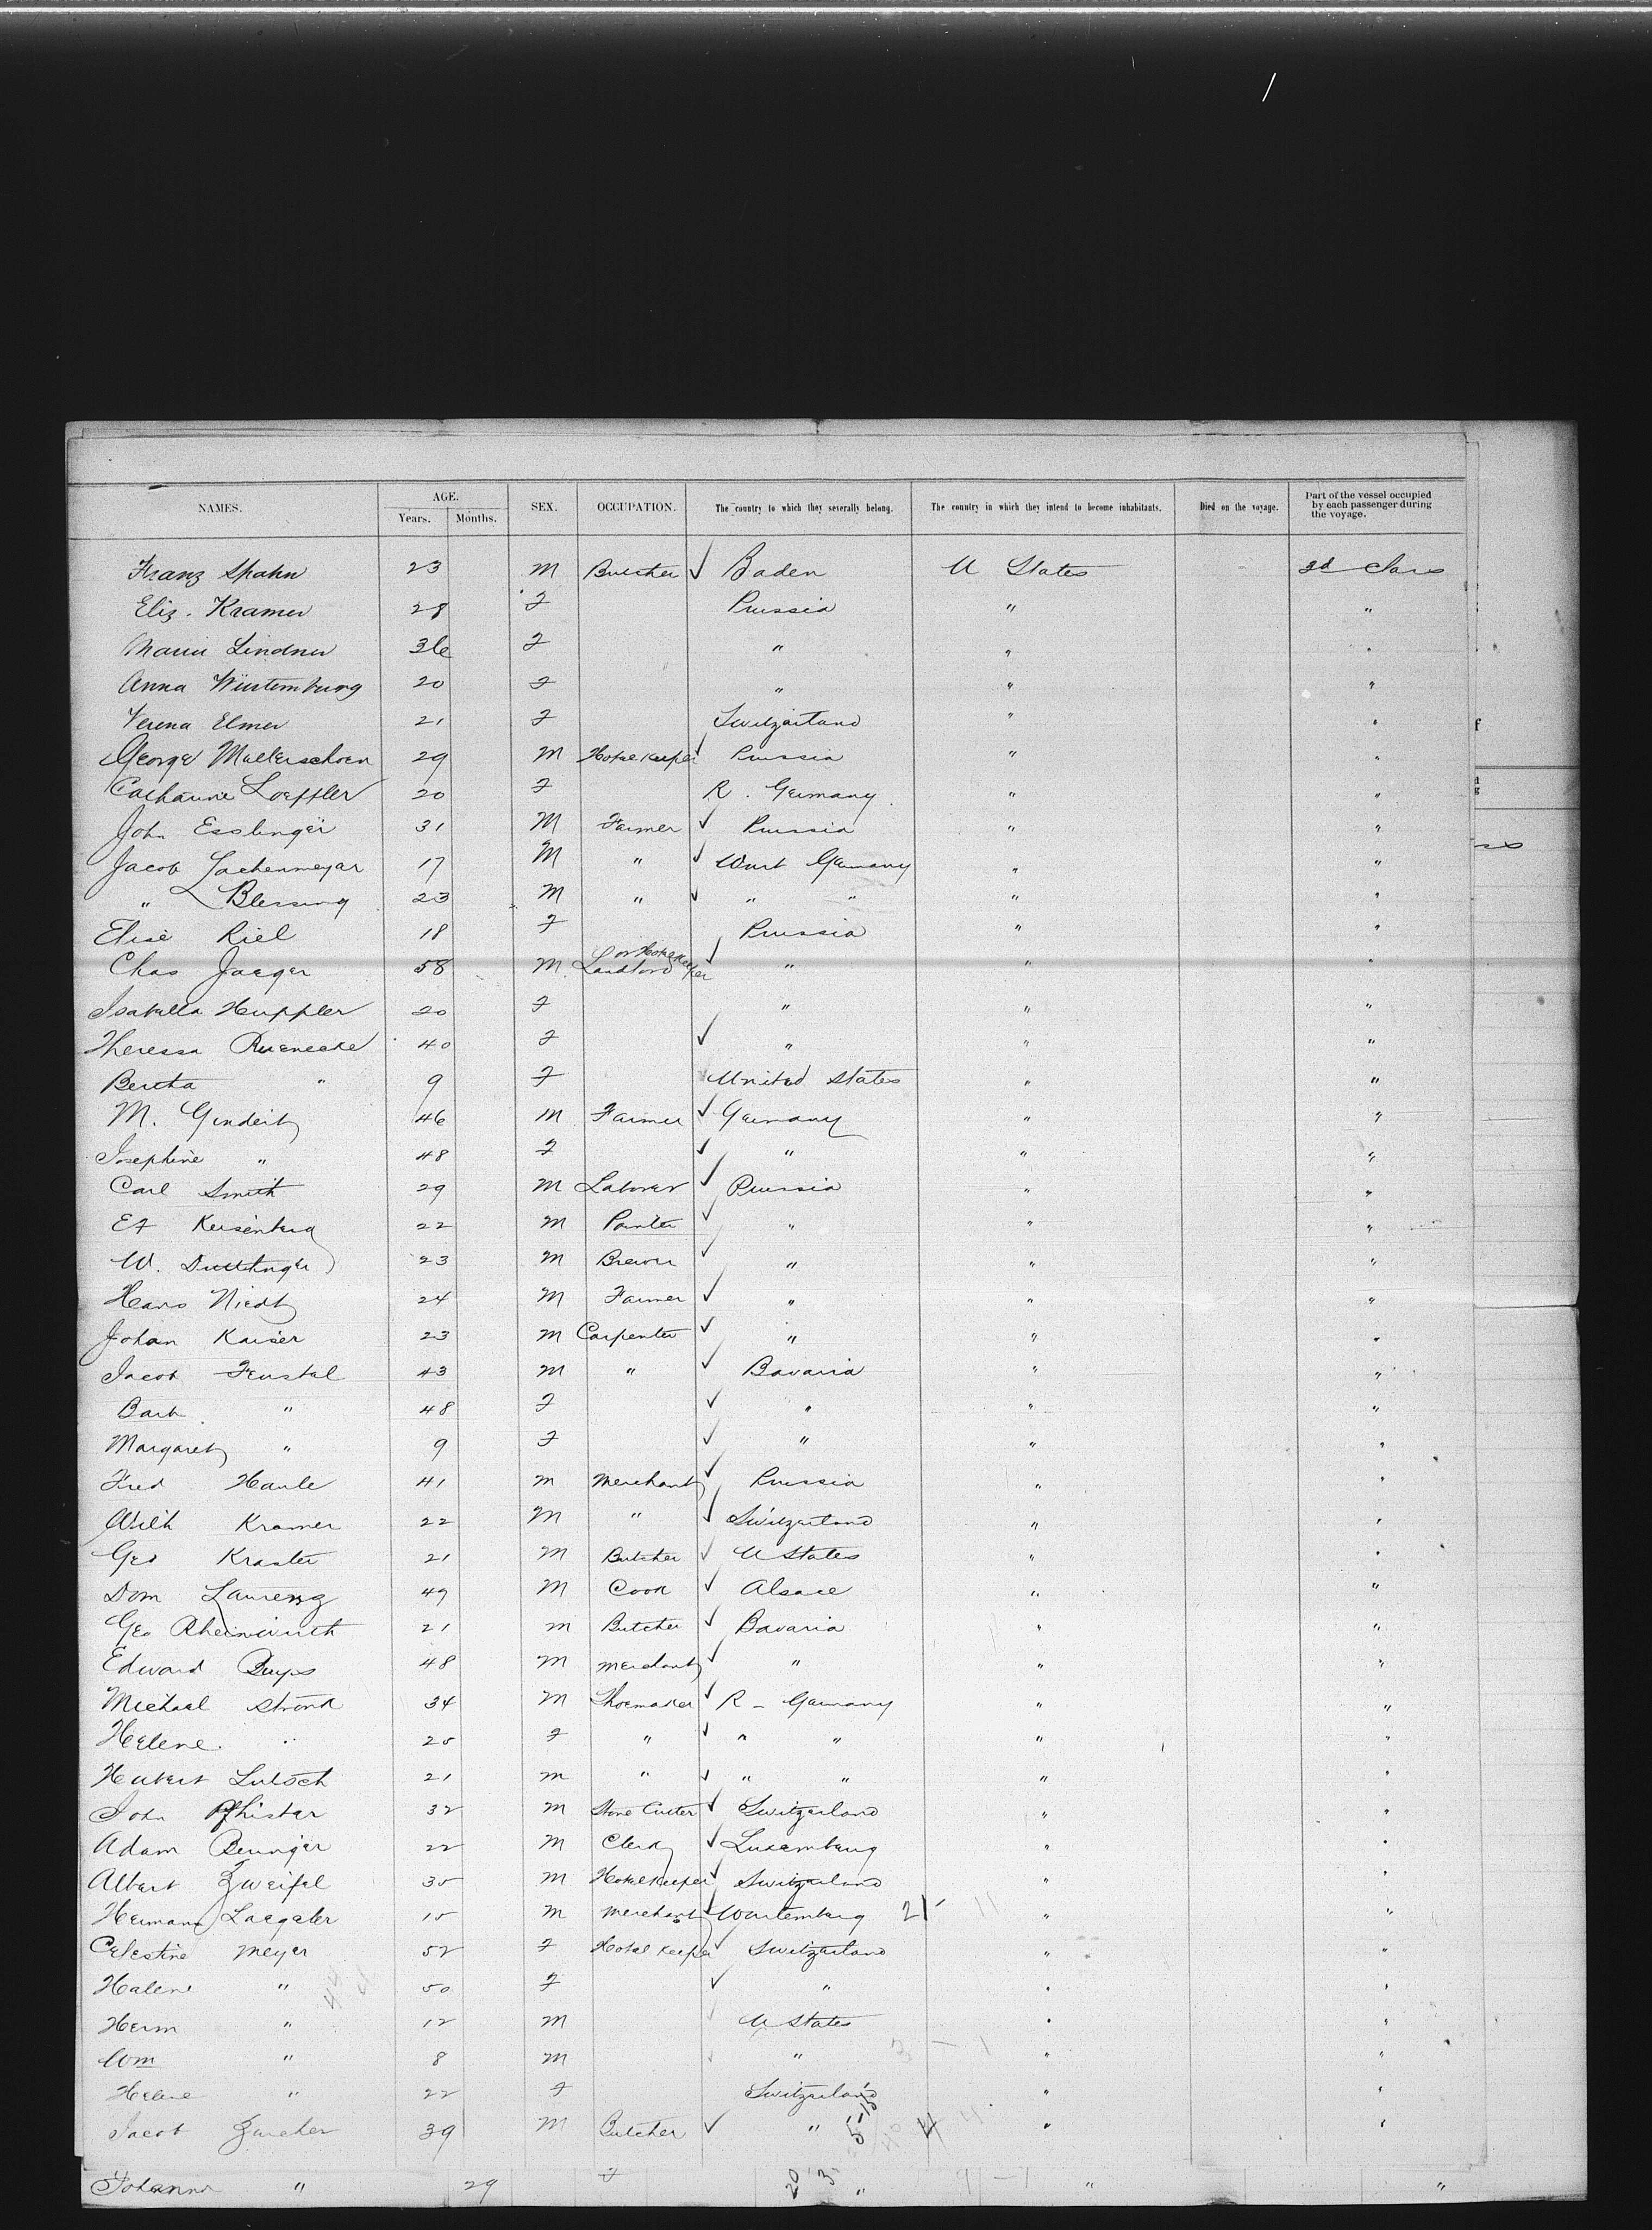 NAMES. AGE. Years. Months. SEX. OCCUPATION. The country to which they severally belong. The country in which they intend to become inhabitants. Died on the voyage. Part of the vessel occupied by each passenger during the voyage.
Franz Spahn 23 M Butcher ✓ Baden U States 2d Class
Eliz. Kramer 28 F Prussia " "
Marie Lindner 36 F " " "
Anna Würtemburg 20 F " " "
Verena Elmer 21 F Switzerland " "
George Mullerschoen 29 M Hotel Keeper ✓ Prussia " "
Catharine Loeffler 20 F R. Germany " "
John Esslinger 31 M Farmer ✓ Prussia " "
Jacob Lachenmeyer 17 M " ✓ Wurt Germany " "
" Blessing 23 M " ✓ " " " "
Elise Riel 18 F Prussia " "
Chas Jaeger 58 M Landlord or Hotelkeeper ✓ " " "
Isabella Huppler 20 F " " "
Theressa Ruenecke 40 F ✓ " " "
Bertha " 9 F United States " "
M. 46 M Farmer ✓ Germany " "
Josephine " 48 F ✓ " " "
Carl Smith 29 M Laborer ✓ Prussia " "
Ed Keisenberg 22 M Painter ✓ " " "
W. 23 M Brewer ✓ " " "
Hans Niedt 24 M Farmer ✓ " " "
Johan Kaiser 23 M Carpenter ✓ " " "
Jacob Feustal 43 M " ✓ Bavaria " "
Barb " 48 F ✓ " " "
Margaret " 9 F ✓ " " "
Fred Haule 41 M Merchant ✓ Prussia " "
Wilh Kramer 22 M " ✓ Switzerland " "
Geo Kraster 21 M Butcher ✓ U States " "
Dom Laurenz 49 M Cook ✓ Alsace " "
Geo Rheinwirth 21 M Butcher ✓ Bavaria " "
Edward 48 M Merchant ✓ " " "
Michael Stronk 34 M Shoemaker ✓ R - Germany " "
Helene " 25 F " ✓ " " " "
Herbert Lutsch 21 M " ✓ " " " "
John Pfhister 32 M Stone Cutter ✓ Switzerland " "
Adam Beunger 22 M Clerk ✓ Luxemburg " "
Albert Zweifel 35 M Hotelkeeper ✓ Switzerland " "
Hermann Laegeler 15 M Merchant ✓ Wurtemberg 21- 11 " "
Celestine Meyer 52 F Hotel Keeper ✓ Switzerland " "
Halene " 50 F ✓ " " "
Herm " 12 M U States " "
Wm " 8 M " 3 - 1 " "
Helene " 22 F Switzerland " "
Jacob Zurcher 39 M Butcher ✓ " 4 " "
Johanna " 29 F 20 3 " 9 - 1 " "